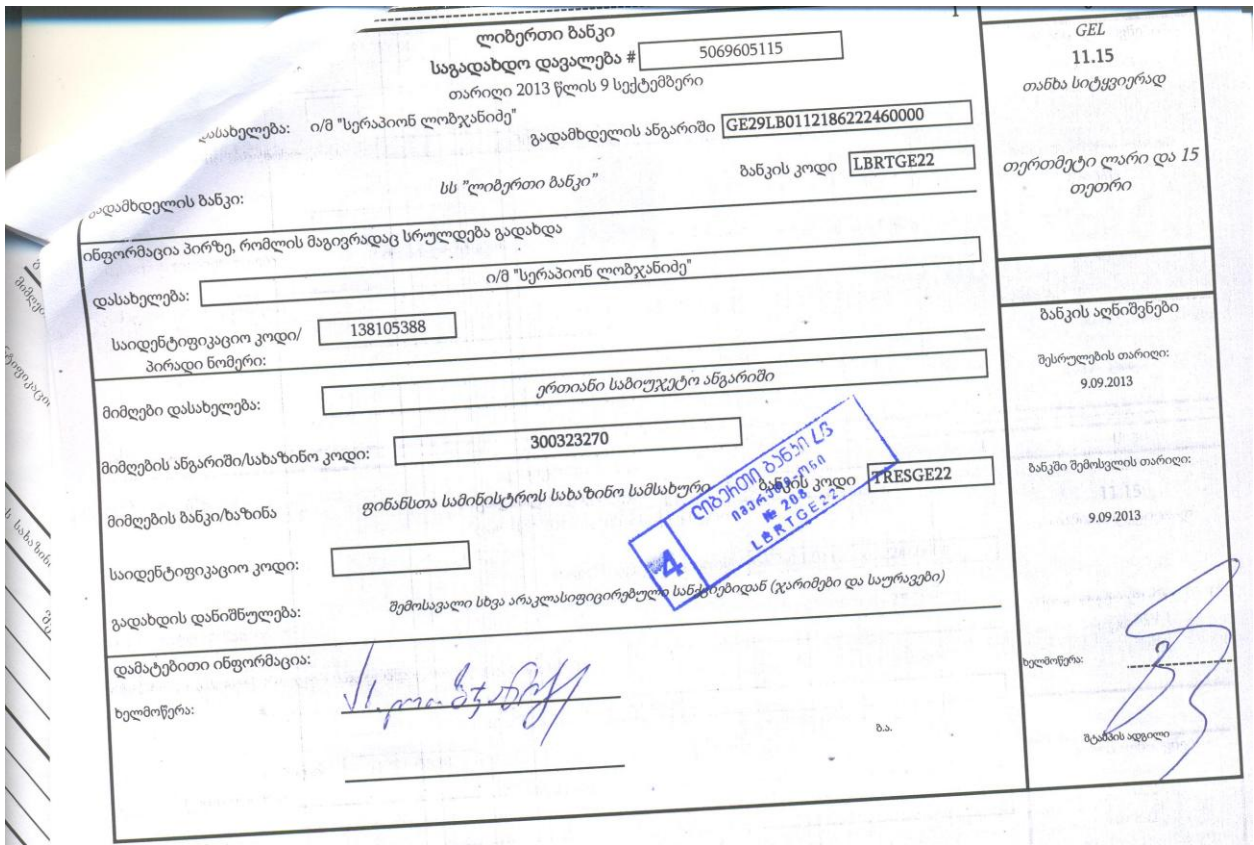 ლიბერთი ბანკი
საგადახდო დავალება # 5069605115
თარიღი 2013 წლის 9 სექტემბერი
დასახელება: ი/მ "სერაპიონ ლობჯანიძე"
გადამხდელის ანგარიში GE29LB0112186222460000
გადამხდელის ბანკი: სს "ლიბერთი ბანკი" ბანკის კოდი LBRTGE22
ინფორმაცია პირზე, რომლის მაგივრადაც სრულდება გადახდა
დასახელება: ი/მ "სერაპიონ ლობჯანიძე"
საიდენტიფიკაციო კოდი/ 138105388
პირადი ნომერი:
მიმღები დასახელება: ერთიანი საბიუჯეტო ანგარიში
მიმღების ანგარიში/სახაზინო კოდი: 300323270
მიმღების ბანკი/ხაზინა ფინანსთა სამინისტროს სახაზინო სამსახური ბანკის კოდი TRESGE22
საიდენტიფიკაციო კოდი:
გადახდის დანიშნულება: შემოსავალი სხვა არაკლასიფიცირებული სანქციებიდან (ჯარიმები და საურავები)
დამატებითი ინფორმაცია:
ხელმოწერა:
ბ.ა.
ლიბერთი ბანკი
№ 208
LBRTGE22
4
GEL
11.15
თანხა სიტყვიერად
თერთმეტი ლარი და 15
თეთრი
ბანკის აღნიშვნები
შესრულების თარიღი:
9.09.2013
ბანკში შემოსვლის თარიღი:
9.09.2013
ხელმოწერა:
შტამპის ადგილი